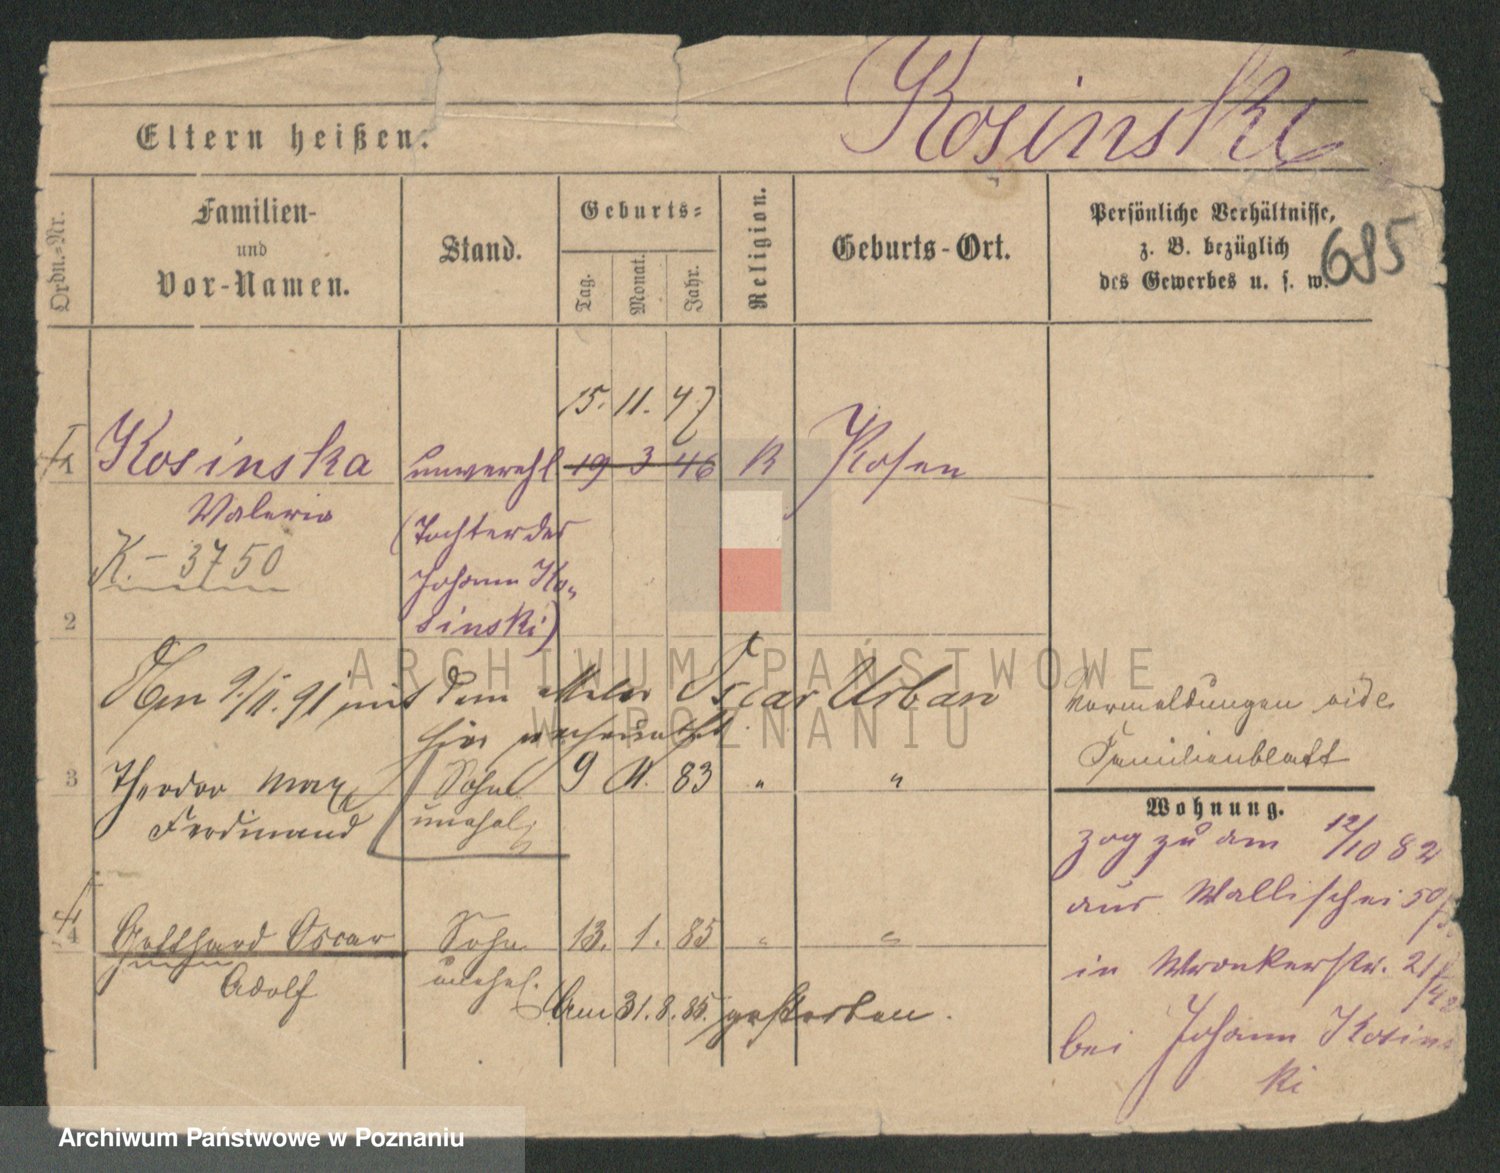 Kosinski
Eltern heißen:
Ordn.-Nr.
Familien-
und
Vor-Namen.
Stand.
Geburts-
Tag.
Monat.
Jahr.
Religion.
Geburts-Ort.
Persönliche Verhältnisse,
z. B. bezüglich
des Gewerbes u. s. w.
685
15. 11. 47
1 Kosinska unverehl 19 3 46 K Posen
Valeria
(Tochter des
K.- 3750
Johann Ko-
sinski)
2
ARCHIWUM PAŃSTWOWE
W POZNANIU
9./11.91 mit dem Maler Oscar Urban
hier verheirathet
Vormeldungen vide
Familienblatt
3 Theodor Max Sohn 9 11. 83 " "
Ferdinand unehel.
Wohnung.
zog zu am 12/10 82
aus Wallischei 50/
4 Gotthard Oscar Sohn 13. 1. 85 " "
Adolf unehel.
in Wronkerstr. 21/
Am 31.8.85. gestorben.
bei Johann Kosins
ki
Archiwum Państwowe w Poznaniu